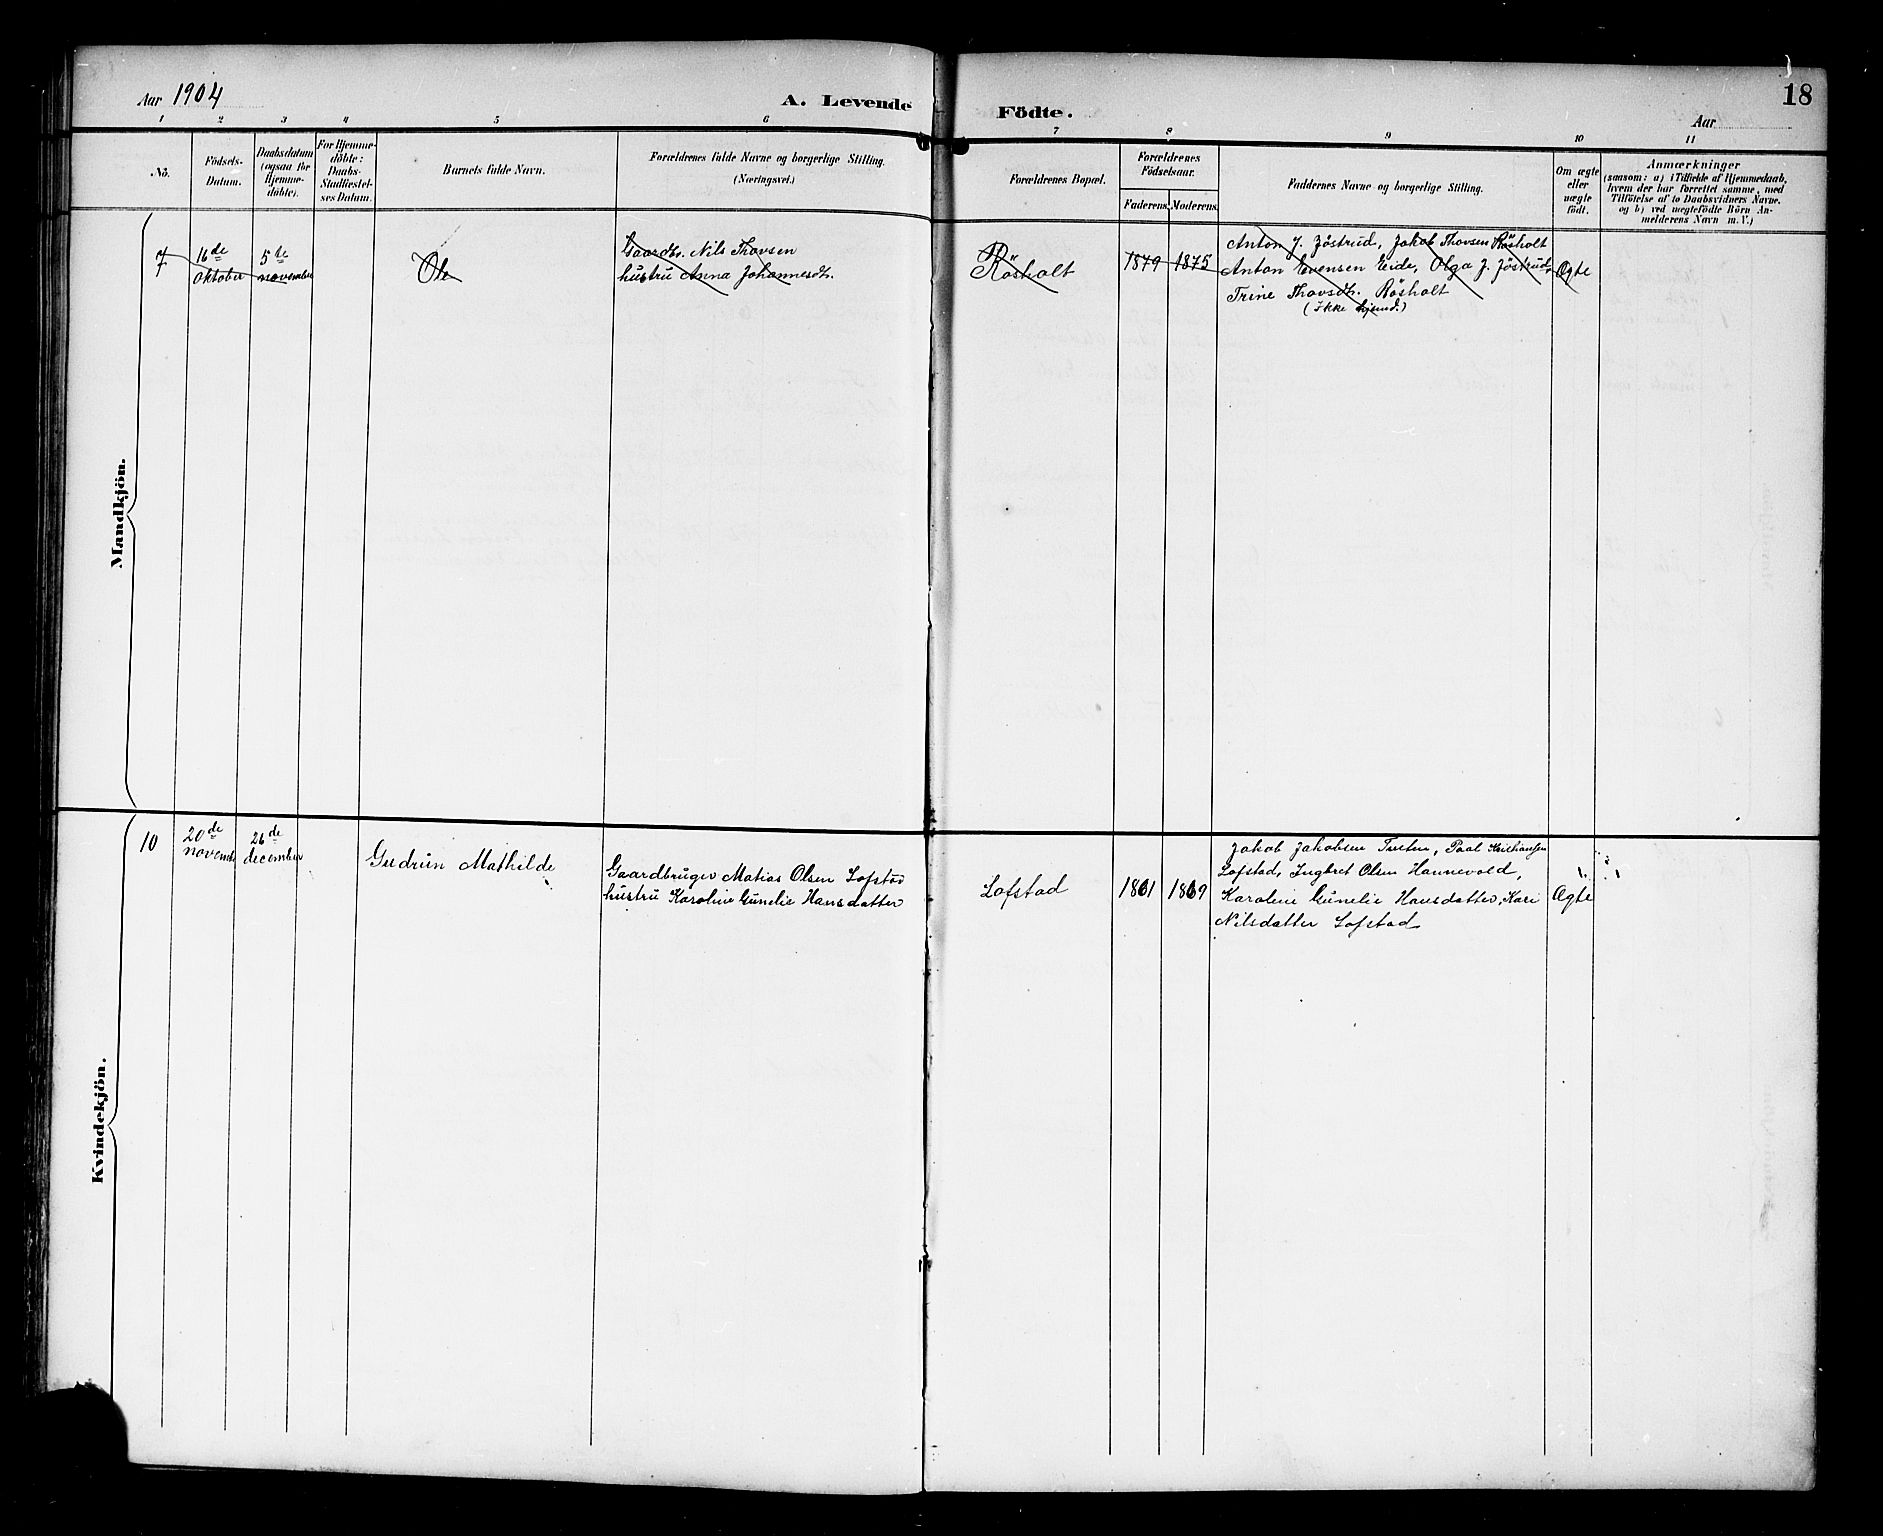 Aar 1904
A. Levende Födte.
Aar
18
1 2 3 4 5 6 7 8 9 10 11
No.
Födsels-
Datum.
Daabsdatum
(ogsaa for
Hjemme-
döbte).
For Hjemme-
döbte:
Daabs-
Stadfæstel-
ses Datum.
Barnets fulde Navn.
Forældrenes fulde Navne og borgerlige Stilling.
(Næringsvei.)
Forældrenes Bopæl.
Forældrenes
Födselsaar.
Faderens.
Moderens.
Faddernes Navne og borgerlige Stilling.
Om ægte
eller
uægte
födt.
Anmærkninger
(saasom: a) i Tilfælde af Hjemmedaab,
hvem der har forrettet samme, med
Tilföielse af to Daabsvidners Navne.
og b) ved uægtefödte Börn An-
melderens Navn m. V.)
Mandkjön.
7
16de
Oktober
5te
november
Ole
Gaardbr. Nils Thovsen
hustru Anna Johannesdtr.
Rösholt
1879
1875
Anton J. Jöstrud, Jakob Thovsen Rösholt
Anton Evensen Eide, Olga J. Jöstrud,
Trine Thovsdtr. Rösholt
(Ikke hjemd.)
Ægte
Kvindekjön.
10
20de
novemb
26de
december
Gudrun Mathilde
Gaardbruger Matias Olsen Lofstad
hustru Karoline Gunelie Hansdatter
Lofstad
1861
1869
Jakob Jakobsen Tveten, Paal Kristiansen
Lofstad, Ingbret Olsen Hannevold,
Karoline Gunelie Hansdatter, Kari
Nilsdatter Lofstad
Ægte